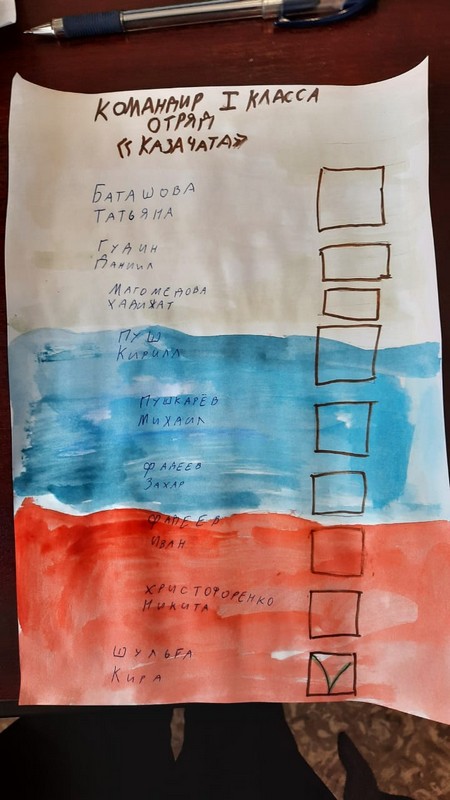 КОМАНДИР I КЛАССА
ОТРЯД
«КАЗАЧАТА»
БАТАШОВА
ТАТЬЯНА
ГУДИН
ДАНИИЛ
МАГОМЕДОВА
ХАДИЖАТ
ПУШ
КИРИЛЛ
ПУШКАРЁВ
МИХАИЛ
ФАДЕЕВ
ЗАХАР
ФАДЕЕВ
ИВАН
ХРИСТОФОРЕНКО
НИКИТА
ШУЛЬГА
КИРА